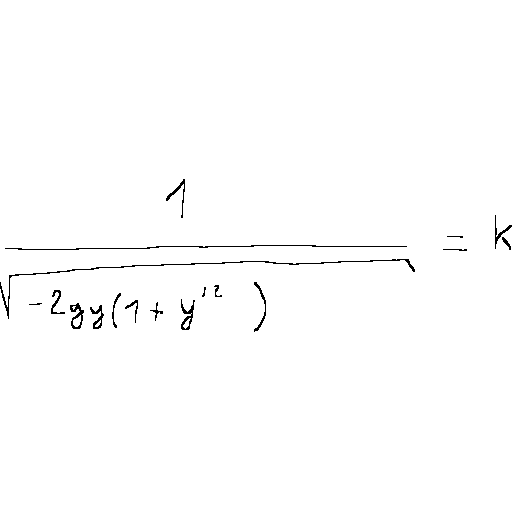 \frac{1}{\sqrt{-2gy(1+y'^2)}} = k